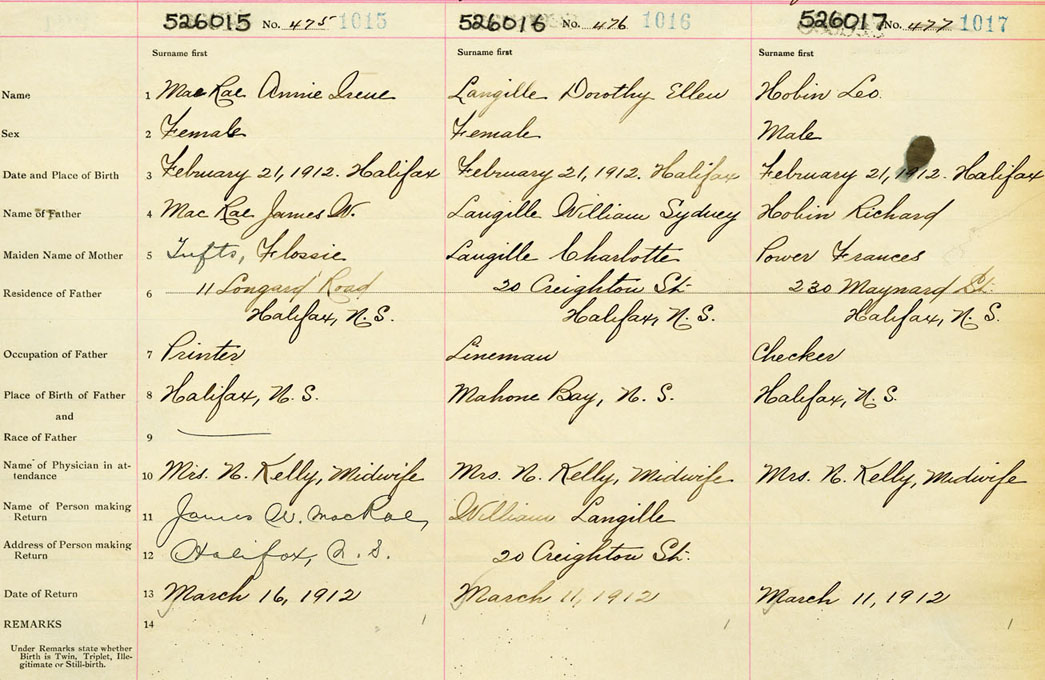 526015 No. 475 1015 526016 No. 476 1016 526017 No. 477 1017
Surname first Surname first Surname first
Name 1 MacRae Annie Irene Langille Dorothy Ellen Hobin Leo.
Sex 2 Female Female Male
Date and Place of Birth 3 February 21, 1912. Halifax February 21, 1912. Halifax February 21, 1912. Halifax
Name of Father 4 Mac Rae James W. Langille William Sydney Hobin Richard
Maiden Name of Mother 5 Tufts, Flossie Langille Charlotte Power Frances
Residence of Father 6 11 Longard Road 20 Creighton St. 230 Maynard St.
Halifax, N.S. Halifax, N.S. Halifax, N.S.
Occupation of Father 7 Printer Lineman Checker
Place of Birth of Father 8 Halifax, N.S. Mahone Bay, N.S. Halifax, N.S.
and
Race of Father 9
Name of Physician in at-
tendance 10 Mrs. N. Kelly, Midwife Mrs. N. Kelly, Midwife Mrs. N. Kelly, Midwife
Name of Person making
Return 11 James W. MacRae, William Langille
Address of Person making
Return 12 Halifax, N.S. 20 Creighton St.
Date of Return 13 March 16, 1912 March 11, 1912 March 11, 1912
REMARKS 14
Under Remarks state whether
Birth is Twin, Triplet, Ille-
gitimate or Still-birth.